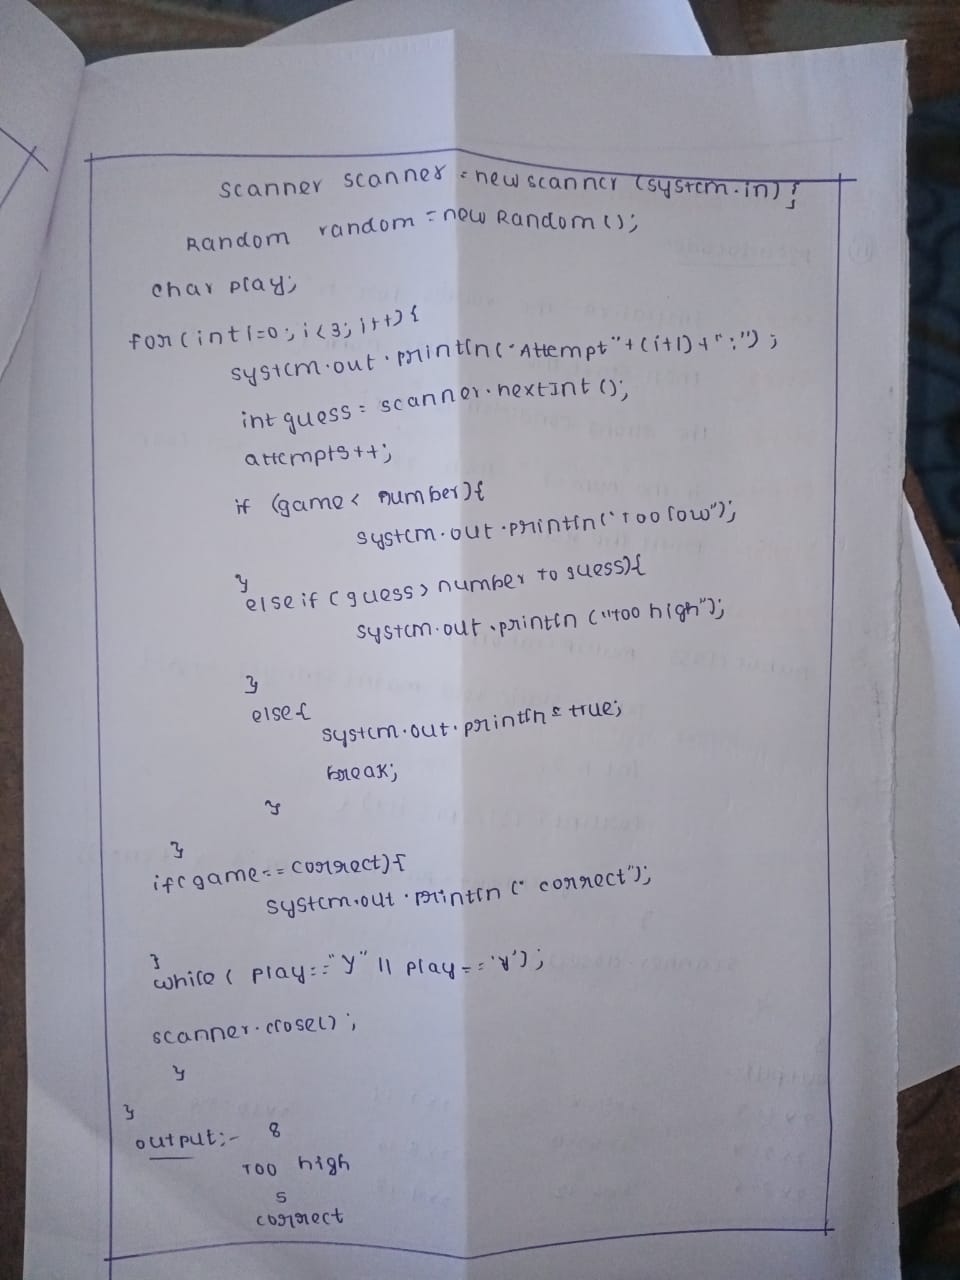 scanner scanner = new scanner (system.in) {
Random random = new Random ();
char play;
for (int i=0; i<3; i++) {
system.out.println("Attempt"+(i+1)+":");
int guess = scanner.nextInt ();
attempts++;
if (game < number) {
system.out.println("Too low");
}
else if (guess > number to guess) {
system.out.println ("Too high");
}
else {
system.out.println = true;
break;
}
}
if (game == correct) {
system.out.println (" correct");
}
while ( play == "y" || play == 'y');
scanner.close();
}
}
output:- 8
Too high
5
correct